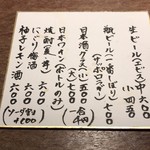 生ビール(エビス)中 六〇〇
小 四五〇
瓶ビール(一番しぼり)七〇〇
(サッポロラガー)
日本酒グラス(小)五〇〇
日本ワイン(ボトルのみ)
焼酎(麦、芋) 六〇〇
にごり梅酒 六〇〇
柚子レモン酒 六〇〇
(ソーダ割は
+100)